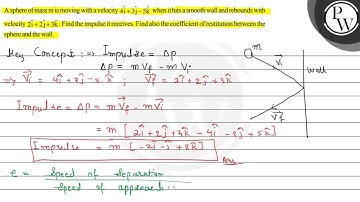 A sphere of mass m is moving with a velocity 4î+3ĵ−5k̂ when it hits a smooth wall and rebounds with
velocity 2î+2ĵ+3k̂. Find the impulse it receives. Find also the coefficient of restitution between the
sphere and the wall.
PW
Key Concept :⇒ Impulse = Δp
Δp = m Vf − m Vi
m
V⃗i
wall
V⃗f
⇒ V⃗i = 4î+3ĵ−5k̂ ; V⃗f = 2î+2ĵ+3k̂
Impulse = Δp = m V⃗f − m V⃗i
= m [2î+2ĵ+3k̂ −4î −3ĵ +5k̂]
Impulse = m [−2î−ĵ+8k̂]
Ans
e = Speed of Separation
Speed of approach